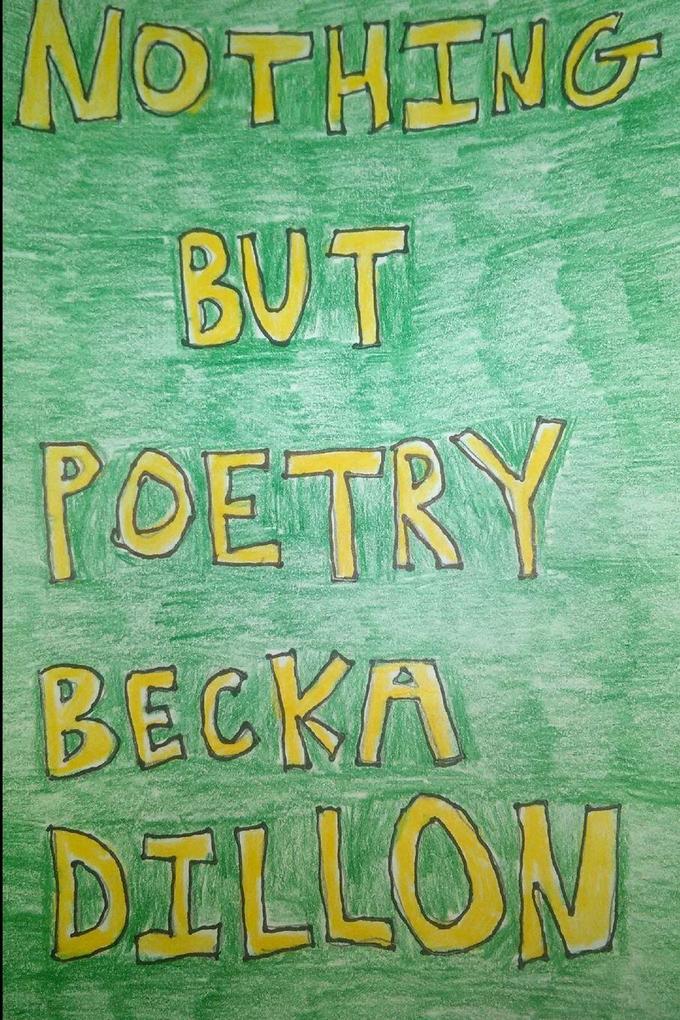 NOTHING
BUT
POETRY
BECKA
DILLON